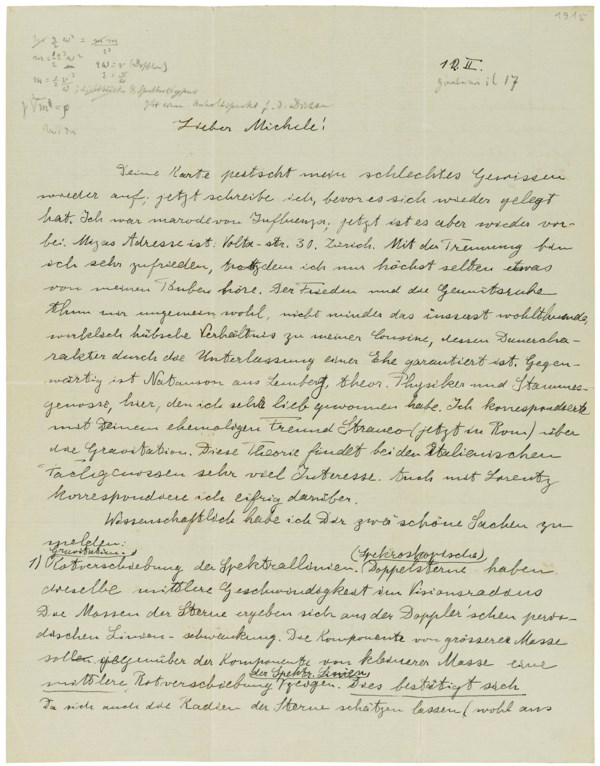 1915
12. II.
Lieber Michele!
Deine Karte peitscht mein schlechtes Gewissen
wieder auf; jetzt schreibe ich, bevor es sich wieder gelegt
hat. Ich war marode von Influenza, jetzt ist es aber wieder vor-
bei. Mizas Adresse ist: Volta-str. 30. Zürich. Mit der Trennung bin
ich sehr zufrieden, trotzdem ich nur höchst selten etwas
von meinen Buben höre. Der Frieden und die Gemütsruhe
thun mir ungemein wohl, nicht minder das äusserst wohlthuende,
wirklich hübsche Verhältnis zu meiner Cousine, dessen Dauercha-
rakter durch die Unterlassung einer Ehe garantiert ist. Gegen-
wärtig ist Natanson aus Lemberg, theor. Physiker und Stammes-
genosse, hier, den ich sehr lieb gewonnen habe. Ich korrespondierte
mit Deinem ehemaligen Freund Straneo (jetzt in Rom) über
die Gravitation. Diese Theorie findet bei den italienischen
Fachgenossen sehr viel Interesse. Auch mit Lorentz
korrespondiere ich eifrig darüber.
Wissenschaftlich habe ich Dir zwei schöne Sachen zu
melden:
1) Gravitation. Rotverschiebung der Spektrallinien. (Spektroskopische) Doppelsterne haben
dieselbe mittlere Geschwindigkeit im Visionsradius
Die Massen der Sterne ergeben sich aus der Doppler'schen perio-
dischen Linien-schwankung. Die Komponente von grösserer Masse
soll gegenüber der Komponente von kleinerer Masse eine
mittlere Rotverschiebung der Spektr. Linien zeigen. Dies bestätigt sich
Da sich auch die Radien der Sterne schätzen lassen (wohl aus